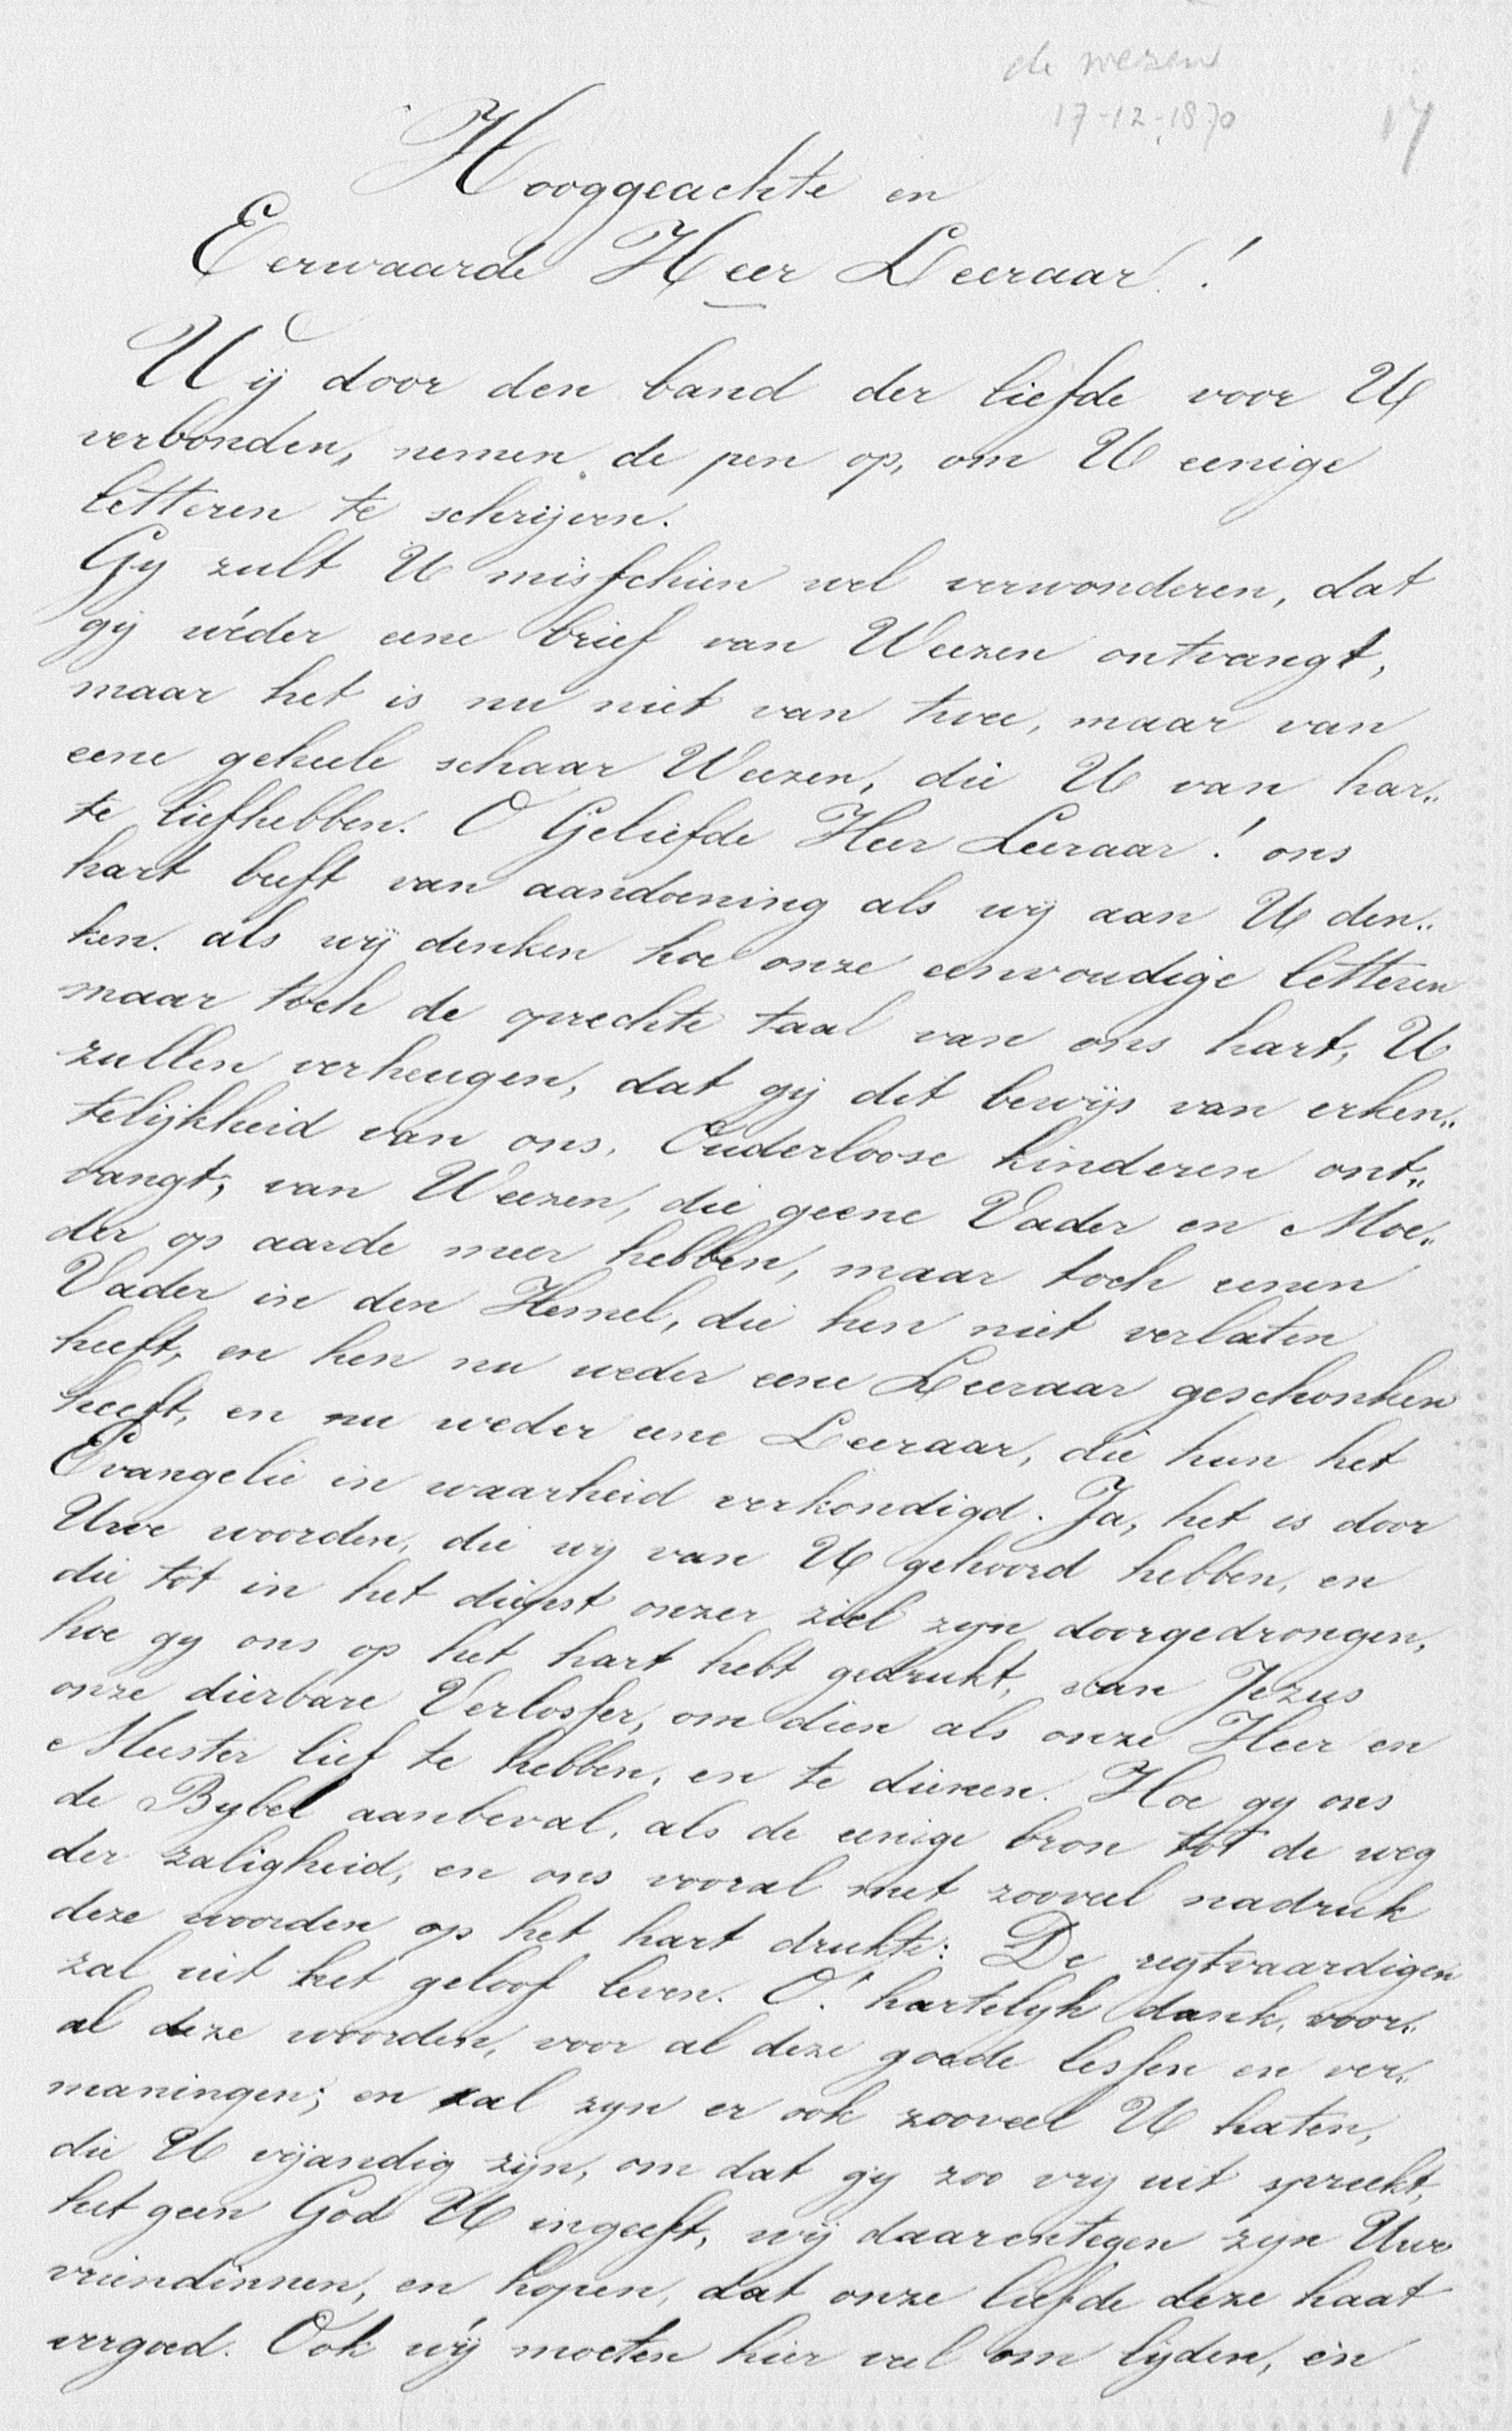 de wezen
17-12-1870
17
Hooggeachte en
Eerwaarde Heer Leeraar!
Wij door den band der liefde voor U
verbonden, nemen de pen op, om U eenige
letteren te schrijven.
Gy zult U misschien wel verwonderen, dat
gij wéder eene brief van Weezen ontvangt,
maar het is nu niet van twee, maar van
eene geheele schaar Weezen, die U van har„
te liefhebben. O Geliefde Heer Leeraar! ons
hart beeft van aandoening als wij aan U den„
ken. als wij denken hoe onze eenvoudige letteren
maar toch de oprechte taal van ons hart, U
zullen verheugen, dat gij dit bewijs van erken„
telijkheid van ons, Ouderloose kinderen ont„
vangt, van Weezen, die geene Vader en Moe„
der op aarde meer hebben, maar toch eenen
Vader in den Hemel, die hen niet verlaten
heeft, en hen nu weder eene Leeraar geschonken
heeft, en nu weder eene Leeraar, die hun het
Evangelie in waarheid verkondigd. Ja, het is door
Uwe woorden, die wij van U gehoord hebben, en
die tot in het diepst onzer ziel zijn doorgedrongen,
hoe gy ons op het hart hebt gedrukt, van Jezus
onze dierbare Verlosser, om dien als onze Heer en
Meester lief te hebben, en te dienen. Hoe gy ons
de Bybel aanbeval, als de eenige bron tot de weg
der zaligheid, en ons vooral met zooveel nadruk
deze woorden op het hart drukte: De regtvaardigen
zal uit het geloof leven. O! hartelyk dank, voor„
al deze woorden, voor al deze goede lessen en ver„
maningen; en al zyn er ook zooveel U haten,
die U vijandig zijn, om dat gij zoo vrij uit spreekt,
het geen God U ingeeft, wij daarentegen zyn Uwe
vriendinnen, en hopen, dat onze liefde deze haat
vergoed. Ook wij moeten hier veel om lijden, en